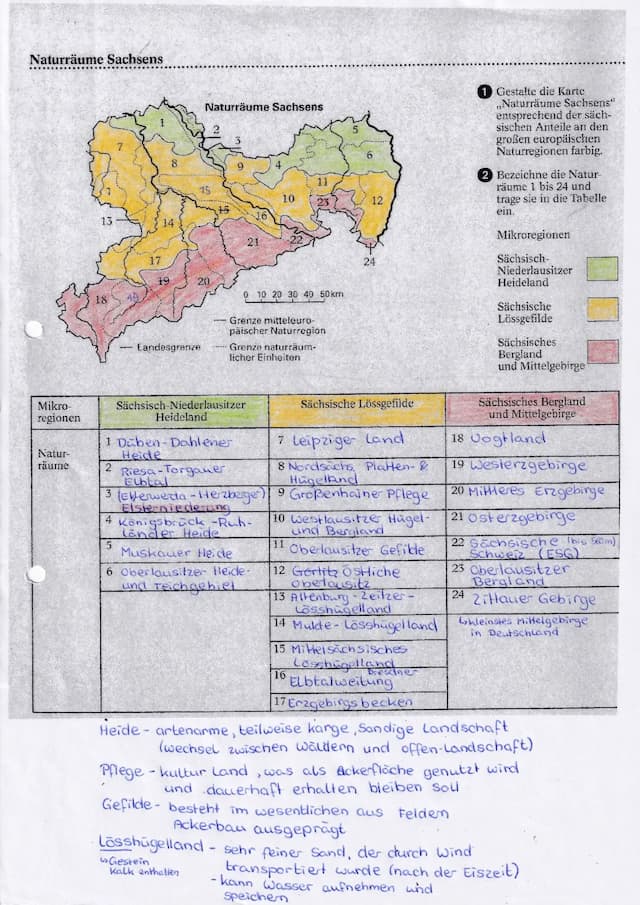 Naturräume Sachsens
Naturräume Sachsens
1
2
3
4
5
6
7
8
9
10
11
12
13
14
15
15
16
17
18
19
20
21
22
23
24
0 10 20 30 40 50km
Grenze mitteleuro-
päischer Naturregion
Landesgrenze
Grenze naturräum-
licher Einheiten
1 Gestalte die Karte
„Naturräume Sachsens“
entsprechend der säch-
sischen Anteile an den
großen europäischen
Naturregionen farbig.
2 Bezeichne die Natur-
räume 1 bis 24 und
trage sie in die Tabelle
ein.
Mikroregionen
Sächsisch-
Niederlausitzer
Heideland
Sächsische
Lössgefilde
Sächsisches
Bergland
und Mittelgebirge
Mikro-
regionen
Sächsisch-Niederlausitzer
Heideland
Sächsische Lössgefilde
Sächsisches Bergland
und Mittelgebirge
Natur-
räume
1 Düben-Dahlener
Heide
2 Riesa-Torgauer
Elbtal
3 (Elsterwerda-Herzberger)
Elsterniederung
4 Königsbrück-Ruh-
länder Heide
5 Muskauer Heide
6 Oberlausitzer Heide-
und Teichgebiet
7 Leipziger Land
8 Nordsächs. Platten- &
Hügelland
9 Großenhainer Pflege
10 Westlausitzer Hügel-
und Bergland
11 Oberlausitzer Gefilde
12 Görlitz Östliche
Oberlausitz
13 Altenburg-Zeitzer-
Lösshügelland
14 Mulde-Lösshügelland
15 Mittelsächsisches
Lösshügelland
16 Dresdner
Elbtalweitung
17 Erzgebirgsbecken
18 Vogtland
19 Westerzgebirge
20 Mittleres Erzgebirge
21 Osterzgebirge
22 Sächsische
Schweiz (ESG)
23 Oberlausitzer
Bergland
24 Zittauer Gebirge
↳ kleinstes Mittelgebirge
in Deutschland
Heide - artenarme, teilweise karge, sandige Landschaft
(wechsel zwischen Wäldern und offen-Landschaft)
Pflege - kultur Land, was als Ackerfläche genutzt wird
und dauerhaft erhalten bleiben soll
Gefilde - besteht im wesentlichen aus Feldern
Ackerbau ausgeprägt
Lösshügelland - sehr feiner Sand, der durch Wind
↳ Gestein
Kalk enthalten
transportiert wurde (nach der Eiszeit)
- kann Wasser aufnehmen und
speichern